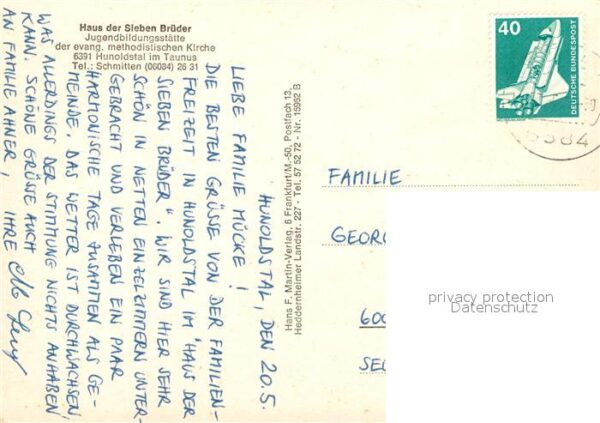 Haus der Sieben Brüder
Jugendbildungsstätte
der evang. methodistischen Kirche
6391 Hunoldstal im Taunus
Tel.: Schmitten (06084) 26 31
HUNOLDSTAL, DEN 20.5.
LIEBE FAMILIE MÜCKE!
DIE BESTEN GRÜSSE VON DER FAMILIEN-
FREIZEIT IN HUNOLDSTAL IM "HAUS DER
SIEBEN BRÜDER". WIR SIND HIER SEHR
SCHÖN IN NETTEN EINZELZIMMERN UNTER-
GEBRACHT UND VERLEBEN EIN PAAR
HARMONISCHE TAGE ZUSAMMEN ALS GE-
MEINDE. DAS WETTER IST DURCHWACHSEN,
WAS ALLERDINGS DER STIMMUNG NICHTS ANHABEN
KANN. SCHÖNE GRÜSSE AUCH
AN FAMILIE AHNER, IHRE
Hans F. Martin-Verlag, 6 Frankfurt/M.-50, Postfach 13,
Heddernheimer Landstr. 227 - Tel. 57 52 72 - Nr. 15962 B
40
DEUTSCHE BUNDESPOST
5384
FAMILIE
GEORG
600
SEL
privacy protection
Datenschutz